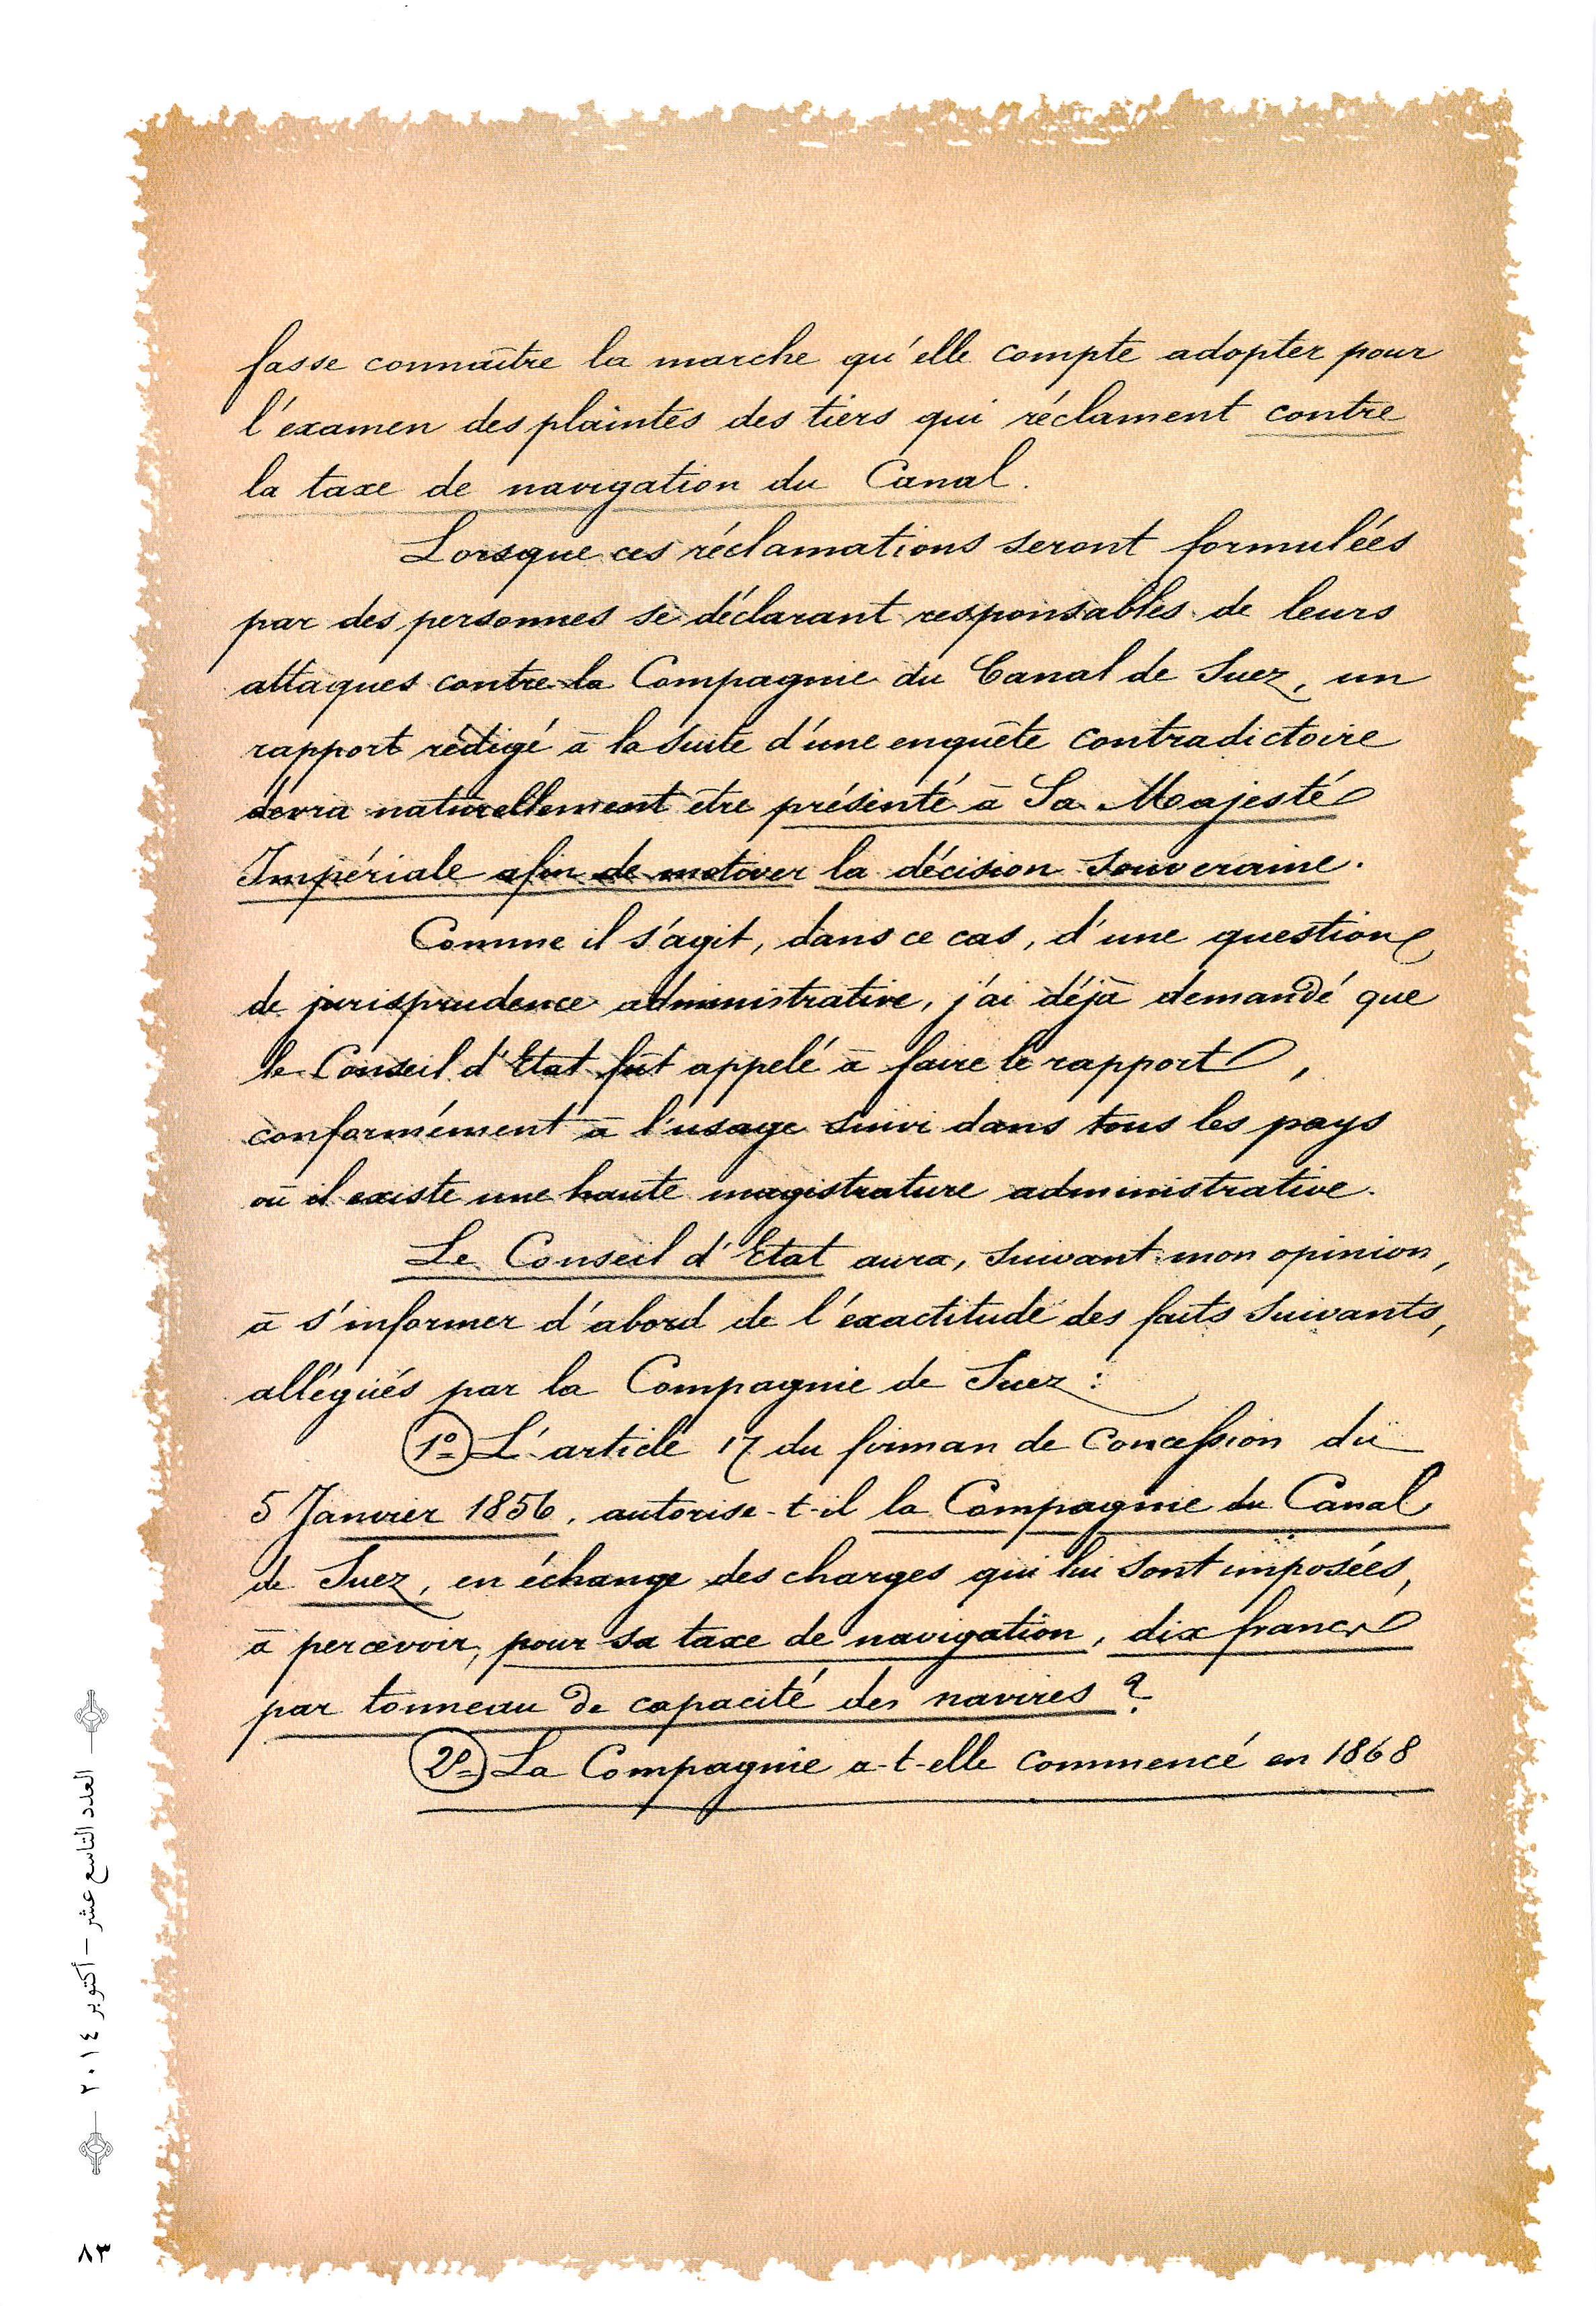 fasse connaître la marche qu'elle compte adopter pour
l'examen des plaintes des tiers qui réclament contre
la taxe de navigation du Canal.
Lorsque ces réclamations seront formulées
par des personnes se déclarant responsables de leurs
attaques contre la Compagnie du Canal de Suez, un
rapport rédigé à la suite d'une enquête contradictoire
devra naturellement être présenté à Sa Majesté
Impériale afin de motiver la décision souveraine.
Comme il s'agit, dans ce cas, d'une question
de jurisprudence administrative, j'ai déjà demandé que
le Conseil d'Etat fût appelé à faire le rapport,
conformément à l'usage suivi dans tous les pays
où il existe une haute magistrature administrative.
Le Conseil d'Etat aura, suivant mon opinion,
à s'informer d'abord de l'exactitude des faits suivants,
allégués par la Compagnie de Suez :
1º L'article 17 du firman de Concession du
5 Janvier 1856, autorise-t-il la Compagnie du Canal
de Suez, en échange des charges qui lui sont imposées,
à percevoir, pour sa taxe de navigation, dix francs
par tonneau de capacité des navires ?
2º La Compagnie a-t-elle commencé en 1868
العدد التاسع عشر – أكتوبر ٢٠١٤
٨٣